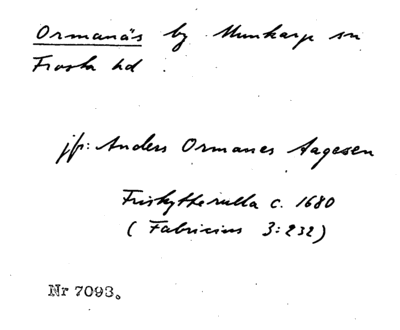 Ormanäs by Munkarp sn
Frosta hd
jfr: Anders Ormanes Aagesen
Friskytterulla c. 1680
( Fabricius 3:232)
Nr 7093.